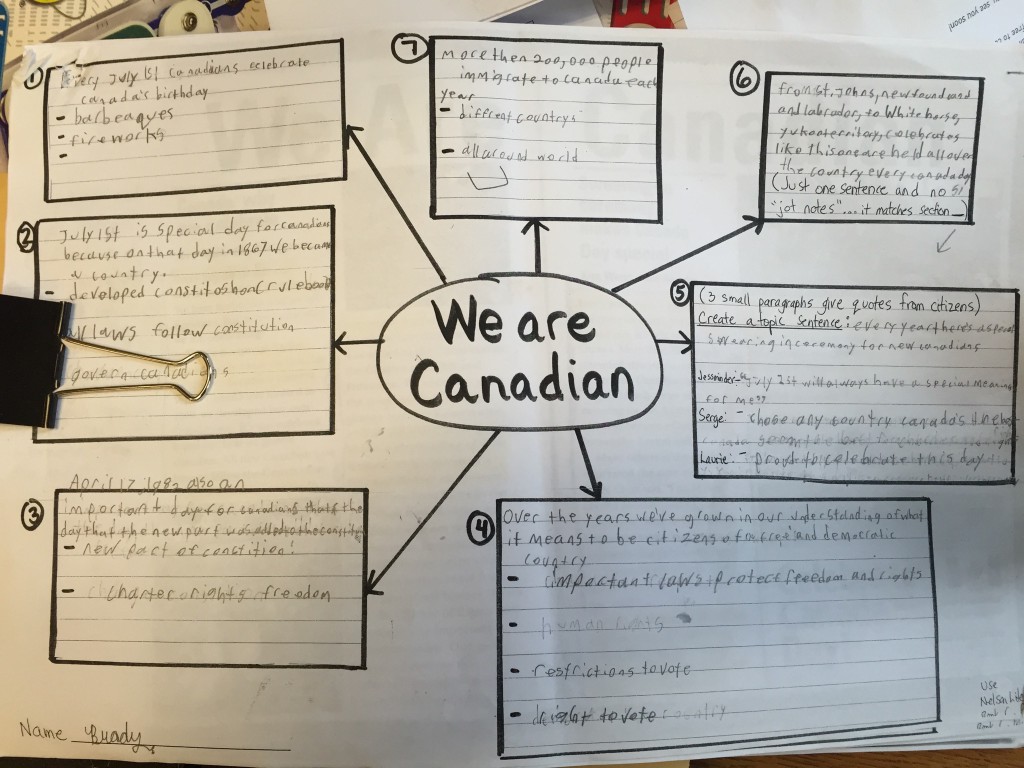 1
Every July 1st canadians celebrate
canada's birthday
- barbeaques
- fireworks
-
7
more then 200,000 people
immigrate to canada each
year
- different countrys
- all around world
6
from st. Johns, newfoundland
and labrador, to White horse,
yukon territory, celebrates
like this one are held all over
the country every canada day
(Just one sentence and no
"jot notes"... it matches section _)
2
July 1st is special day for canadians
because on that day in 1867 we became
a country.
- developed constitoshon (rulebook
all laws follow constitution
govern canadians
We are
Canadian
5
(3 small paragraphs give quotes from citizens)
Create a topic sentence: every year there's a special
swearing in ceromony for new canadians
Jessminder- July 1st will always have a special meaning
for me"
Serge: - chose any country canada's
Laurie: - proud to celebrate this day
3
April 17, 1982 also an
important day for canadians that's the
day that the new part was added to the constit
- new part of constition:
- charter rights freedom
4
Over the years we've grown in our understanding of what
it means to be citizens of a free and democratic
country
- important laws protect freedom and rights
- human rights
- restrictions to vote
- right to vote country
Name Brady
Use
Nelson